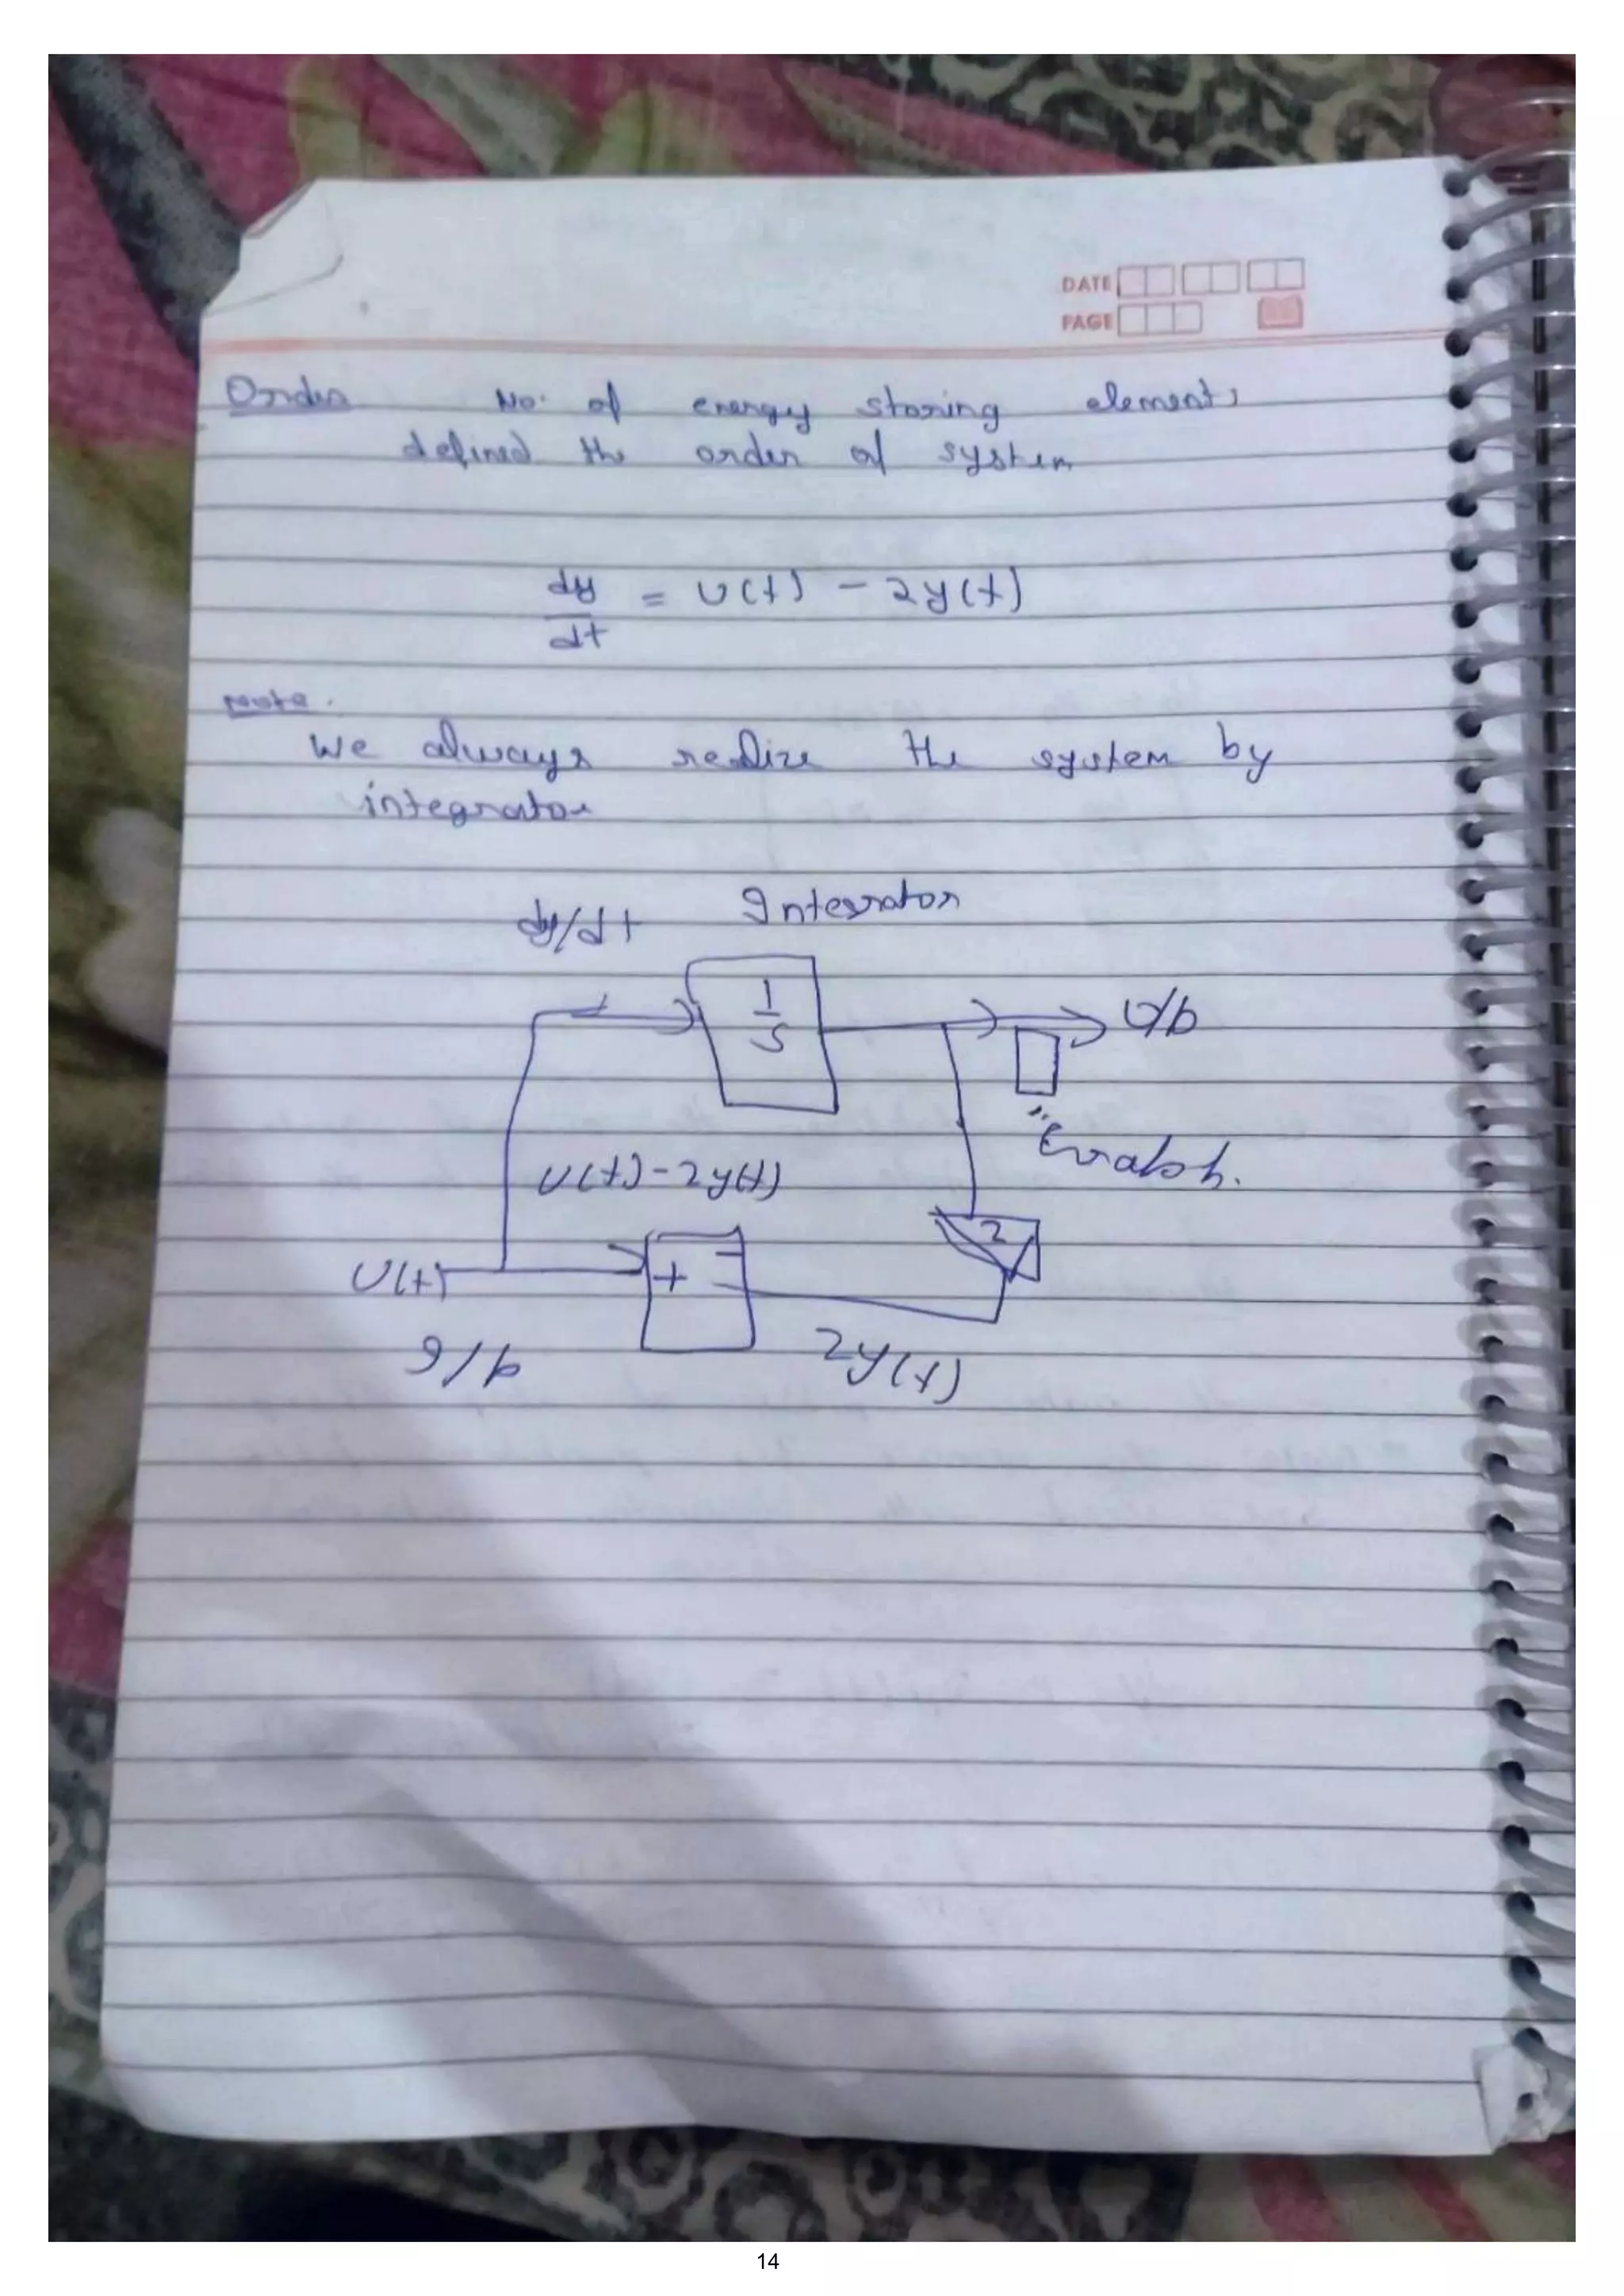 DATE
PAGE
Order No. of energy storing elements
defined the order of system
dy/dt = U(t) - 2y(t)
Note.
We always realize the system by
integrator
dy/dt Integrator
1/S
O/p
U(t)-2y(t)
2
U(t) + -
I/p 2y(t)
14